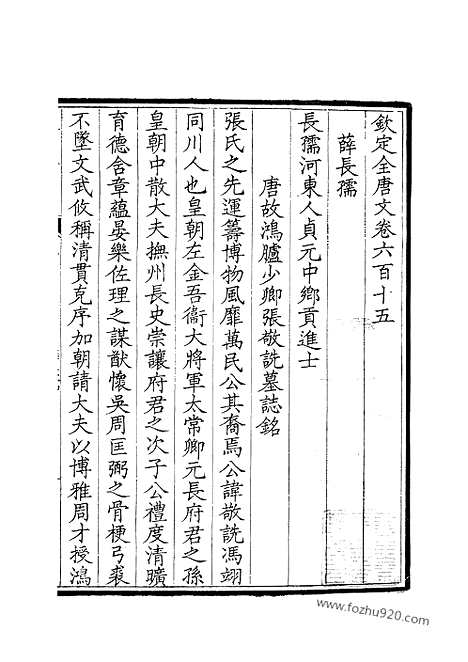 欽定全唐文卷六百十五
薛長孺
長孺河東人貞元中鄉貢進士
唐故鴻臚少卿張敬詵墓誌銘
張氏之先運籌博物風靡萬民公其裔焉公諱敬詵馮翊
同川人也皇朝左金吾衞大將軍太常卿元長府君之孫
皇朝中散大夫撫州長史崇讓府君之次子公禮度清曠
育德含章蘊晏樂佐理之謀猷懷吳周匡弼之骨梗弓裘
不墜文武攸稱清貫克序加朝請大夫以博雅周才授鴻
www.fozhu920.com